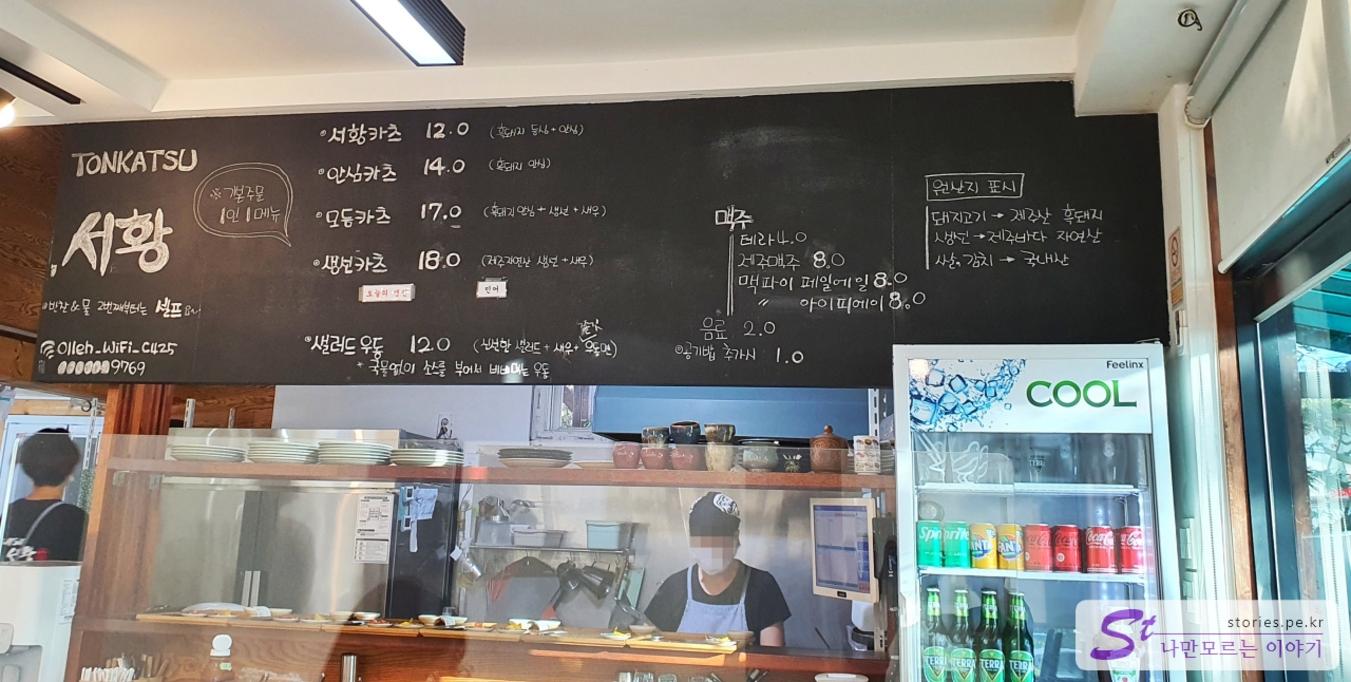 TONKATSU
서황
※기본주문
1인 1메뉴
반찬&물 2번째부터는 셀프
Olleh_WiFi_C425
9769
서황카츠 12.0 (흑돼지 등심+안심)
안심카츠 14.0 (흑돼지 안심)
모둠카츠 17.0 (흑돼지 안심+생선+새우)
생선카츠 18.0 (제주자연산 생선+새우)
오늘의 생선
민어
샐러드우동 12.0 (신선한 샐러드+새우+우동면)
+ 국물없이 소스를 부어서 비벼먹는 우동
맥주
테라 4.0
제주맥주 8.0
맥파이 페일에일 8.0
〃 아이피에이 8.0
음료 2.0
공기밥 추가시 1.0
원산지 표시
돼지고기 → 제주산 흑돼지
생선 → 제주바다 자연산
쌀, 김치 → 국내산
Feelinx
COOL
Sprite
FANTA
Coca-Cola
TERRA
TERRA
TERRA
TERRA
St
stories.pe.kr
나만모르는 이야기